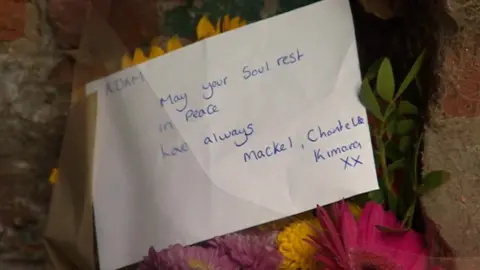 ADAM
May your Soul rest
in Peace
Love always
Mackel, Chantelle
Kimara
XX